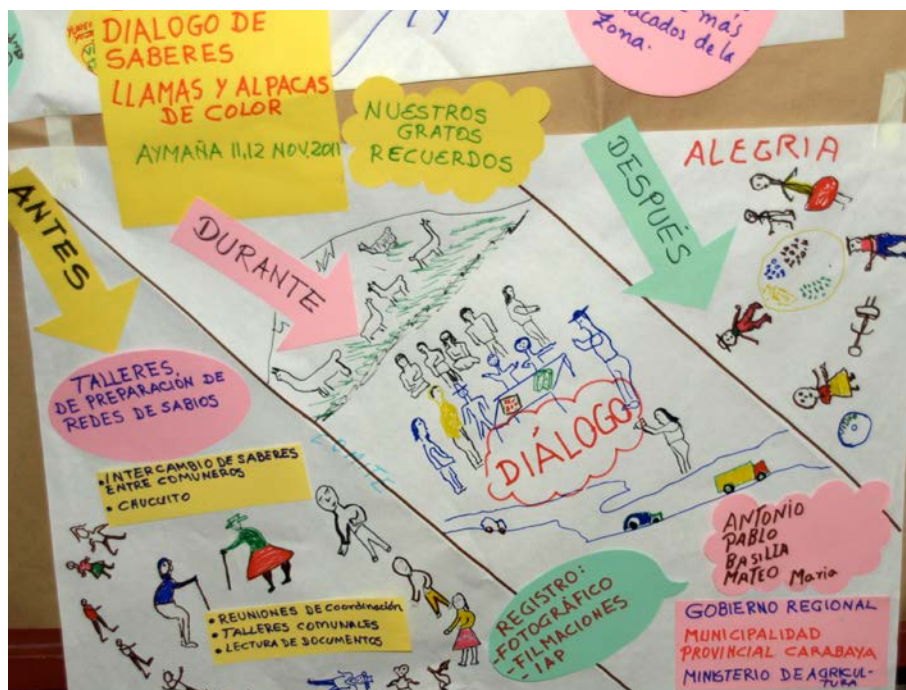 DIALOGO DE
SABERES
LLAMAS Y ALPACAS
DE COLOR
AYMAÑA 11,12 NOV.2011
NUESTROS
GRATOS
RECUERDOS
más
de la
Zona.
ANTES
DURANTE
DESPUÉS
ALEGRIA
TALLERES,
DE PREPARACIÓN DE
REDES DE SABIOS
• INTERCAMBIO DE SABERES
ENTRE COMUNEROS
• CHUCUITO
• REUNIONES DE COORDINACIÓN
• TALLERES COMUNALES
• LECTURA DE DOCUMENTOS
DIÁLOGO
REGISTRO:
-FOTOGRÁFICO
-FILMACIONES
- IAP
ANTONIO
PABLO
BASILIA
MATEO Maria
GOBIERNO REGIONAL
MUNICIPALIDAD
PROVINCIAL CARABAYA
MINISTERIO DE AGRICUL-
TURA